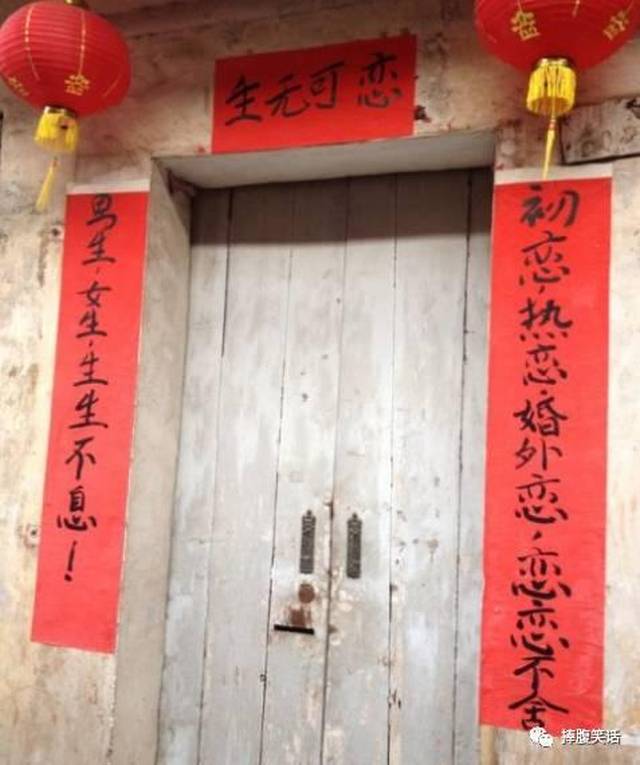 生无可恋
初恋、热恋、婚外恋、恋恋不舍
男生、女生、生生不息！
捧腹笑话